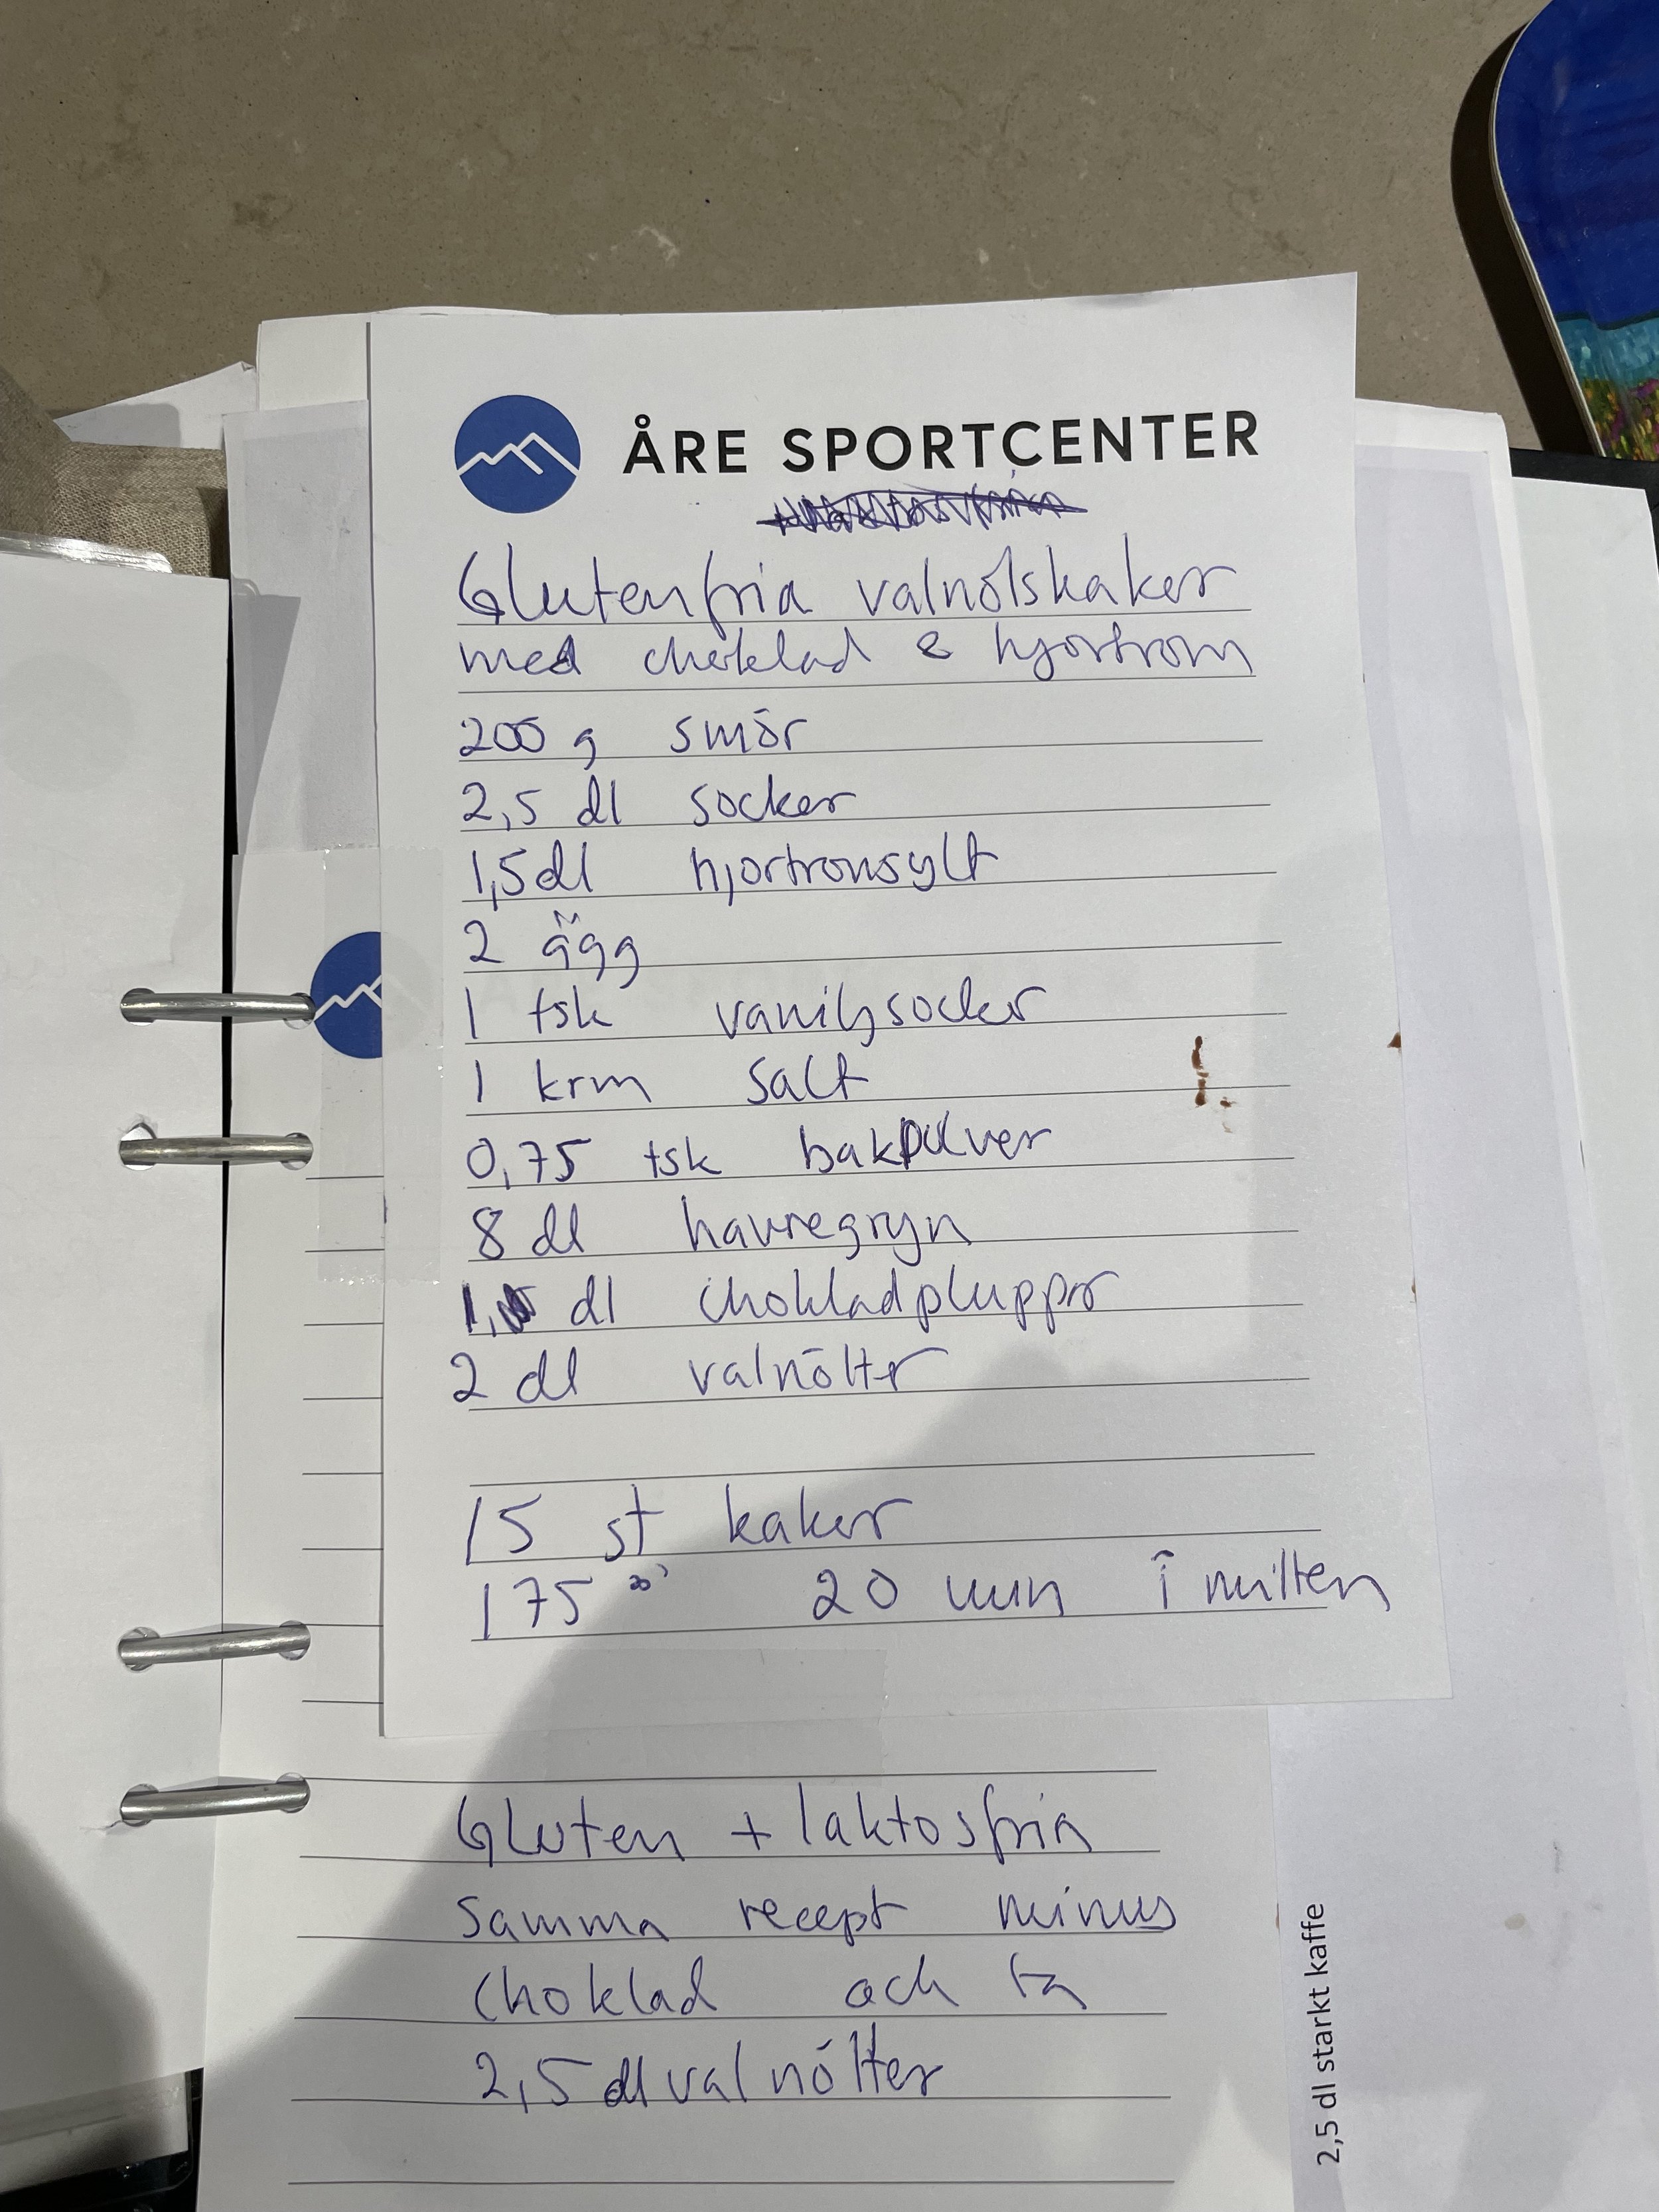 ÅRE SPORTCENTER
Glutenfria valnötskaker
med choklad & hjortron
200 g smör
2,5 dl socker
1,5 dl hjortronsylt
2 ägg
1 tsk vaniljsocker
1 krm salt
0,75 tsk bakpulver
8 dl havregryn
1, dl chokladpluppar
2 dl valnötter
15 st kakor
175° 20 min i mitten
Gluten + laktosfria
samma recept minus
choklad och ta
2,5 dl valnötter
2,5 dl starkt kaffe